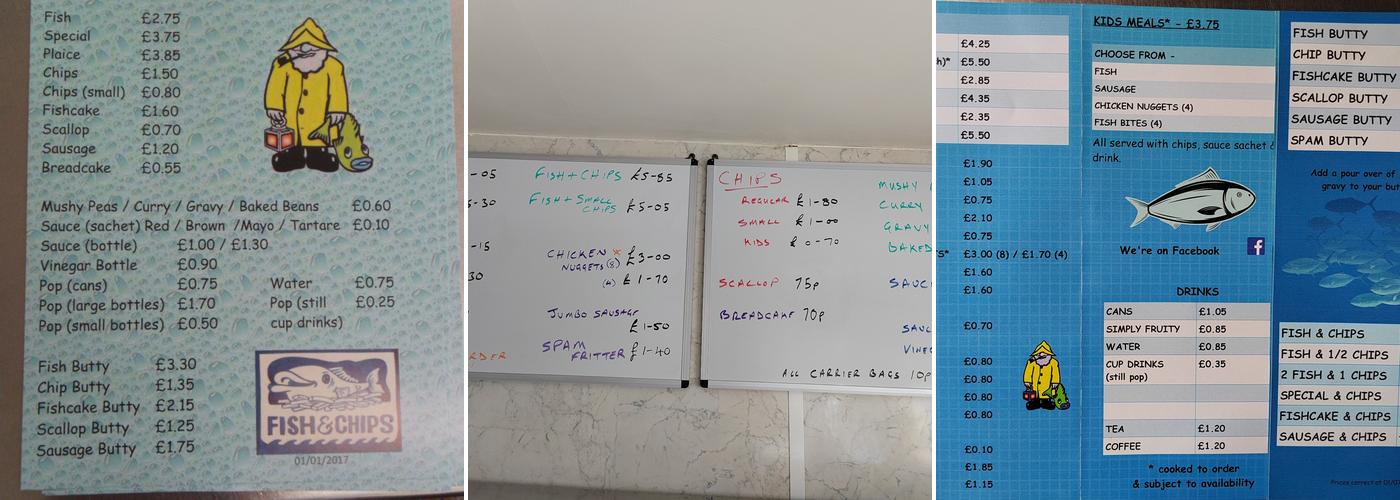 Fish £2.75
Special £3.75
Plaice £3.85
Chips £1.50
Chips (small) £0.80
Fishcake £1.60
Scallop £0.70
Sausage £1.20
Breadcake £0.55
Mushy Peas / Curry / Gravy / Baked Beans £0.60
Sauce (sachet) Red / Brown /Mayo / Tartare £0.10
Sauce (bottle) £1.00 / £1.30
Vinegar Bottle £0.90
Pop (cans) £0.75
Pop (large bottles) £1.70
Pop (small bottles) £0.50
Water £0.75
Pop (still £0.25
cup drinks)
Fish Butty £3.30
Chip Butty £1.35
Fishcake Butty £2.15
Scallop Butty £1.25
Sausage Butty £1.75
FISH & CHIPS
01/01/2017
-05
-30
-15
30
RDER
FISH + CHIPS £5-85
FISH + SMALL
CHIPS £5-05
CHICKEN *
NUGGETS (8) £3-00
(4) £1-70
JUMBO SAUSAGE
£1-50
SPAM
FRITTER £1-40
CHIPS
REGULAR £1-80
SMALL £1-00
KIDS £0-70
SCALLOP 75p
BREADCAKE 70p
MUSHY
CURRY
GRAVY
BAKED
SAUC
SAU
VINE
ALL CARRIER BAGS 10p
£4.25
h)* £5.50
£2.85
£4.35
£2.35
£5.50
£1.90
£1.05
£0.75
£2.10
£0.75
S* £3.00 (8) / £1.70 (4)
£1.60
£1.60
£0.70
£0.80
£0.80
£0.80
£0.80
£0.10
£1.85
£1.15
KIDS MEALS* - £3.75
CHOOSE FROM -
FISH
SAUSAGE
CHICKEN NUGGETS (4)
FISH BITES (4)
All served with chips, sauce sachet &
drink.
We're on Facebook f
DRINKS
CANS £1.05
SIMPLY FRUITY £0.85
WATER £0.85
CUP DRINKS £0.35
(still pop)
TEA £1.20
COFFEE £1.20
* cooked to order
& subject to availability
FISH BUTTY
CHIP BUTTY
FISHCAKE BUTTY
SCALLOP BUTTY
SAUSAGE BUTTY
SPAM BUTTY
Add a pour over of
gravy to your but
FISH & CHIPS
FISH & 1/2 CHIPS
2 FISH & 1 CHIPS
SPECIAL & CHIPS
FISHCAKE & CHIPS
SAUSAGE & CHIPS
Prices correct at